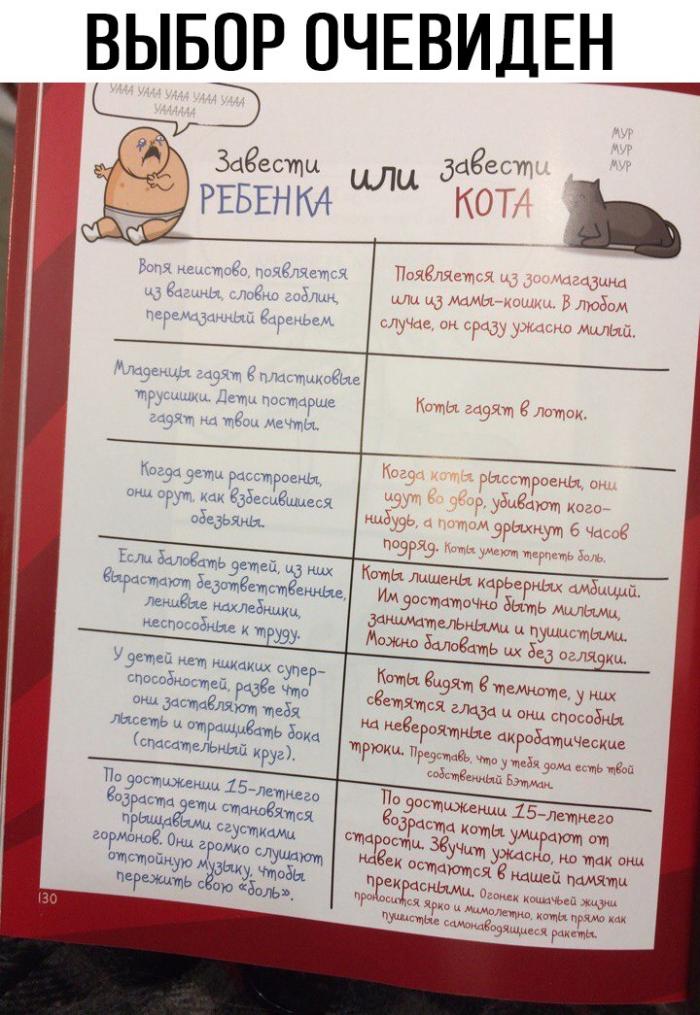 ВЫБОР ОЧЕВИДЕН
УААА УААА УААА УААА УААА
УААААААА
МУР
МУР
МУР
Завести
РЕБЕНКА
или
завести
КОТА
Вопя неистово, появляется
из вагины, словно гоблин,
перемазанный вареньем.
Появляется из зоомагазина
или из мамы-кошки. В любом
случае, он сразу ужасно милый.
Младенцы гадят в пластиковые
трусишки. Дети постарше
гадят на твои мечты.
Коты гадят в лоток.
Когда дети расстроены,
они орут, как взбесившиеся
обезьяны.
Когда коты рысстроены, они
идут во двор, убивают кого-
нибудь, а потом дрыхнут 6 часов
подряд. Коты умеют терпеть боль.
Если баловать детей, из них
вырастают безответственные,
ленивые нахлебники,
неспособные к труду.
Коты лишены карьерных амбиций.
Им достаточно быть милыми,
занимательными и пушистыми.
Можно баловать их без оглядки.
У детей нет никаких супер-
способностей, разве что
они заставляют тебя
лысеть и отращивать бока
(спасательный круг).
Коты видят в темноте, у них
светятся глаза и они способны
на невероятные акробатические
трюки. Представь, что у тебя дома есть твой
собственный Бэтман.
По достижении 15-летнего
возраста дети становятся
прыщавыми сгустками
гормонов. Они громко слушают
отстойную музыку, чтобы
пережить свою «боль».
По достижении 15-летнего
возраста коты умирают от
старости. Звучит ужасно, но так они
навек остаются в нашей памяти
прекрасными. Огонек кошачьей жизни
проносится ярко и мимолетно, коты прямо как
пушистые самонаводящиеся ракеты.
130